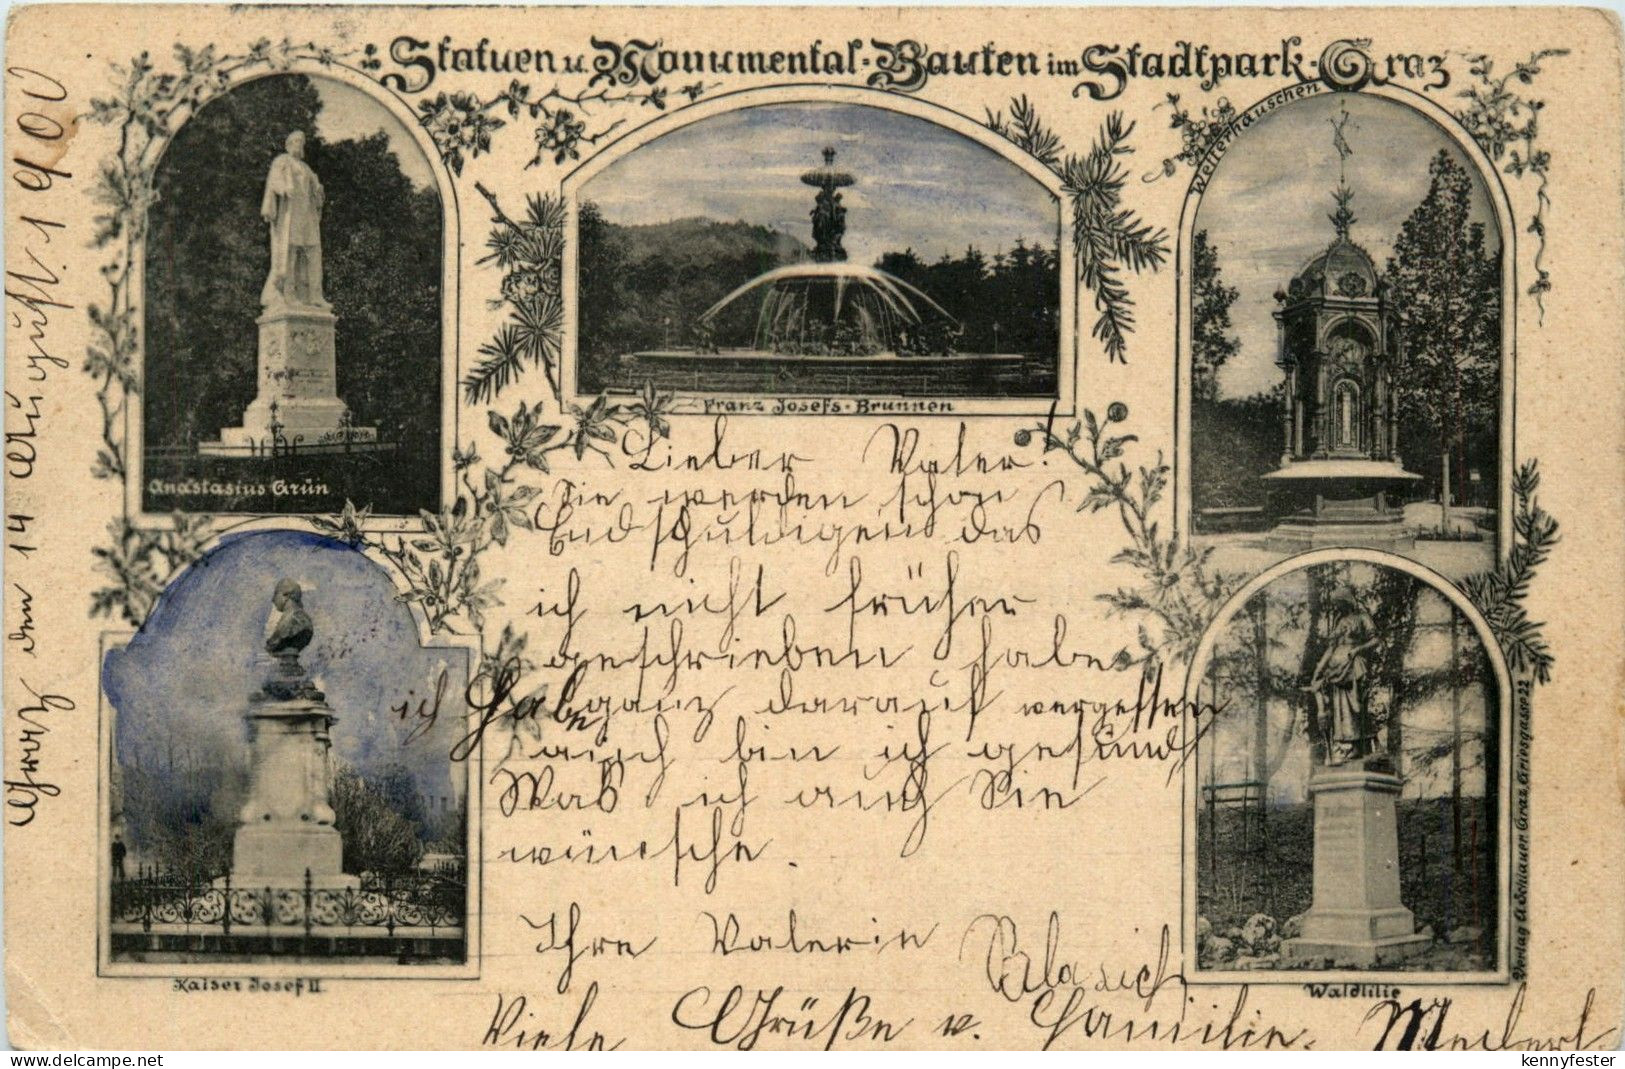 Statuen u. Monumental-Bauten im Stadtpark-Graz
Graz den 14 August 1900
Anastasius Grün
Franz Josefs-Brunnen
Wetterhäuschen
Kaiser Josef II.
Waldlilie
Verlag A. Schlauer Graz, Griesgasse 22
Lieber Vater!
Sie werden schon
Endschuldigen das
ich nicht früher
geschrieben habe
ich Habe ganz darauf vergessen
auch bin ich gesund
Was ich auch Sie
wünsche.
Ihre Valerie
Viele Grüße v. Familie
delcampe.net
kennyfester